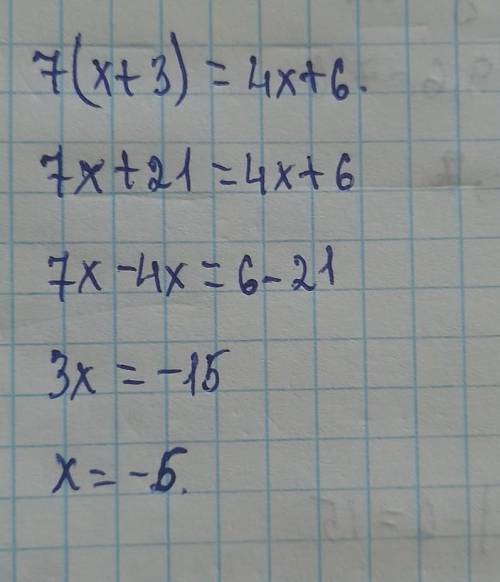 7(x+3)=4x+6.
7x+21=4x+6
7x-4x=6-21
3x=-15
x=-5.